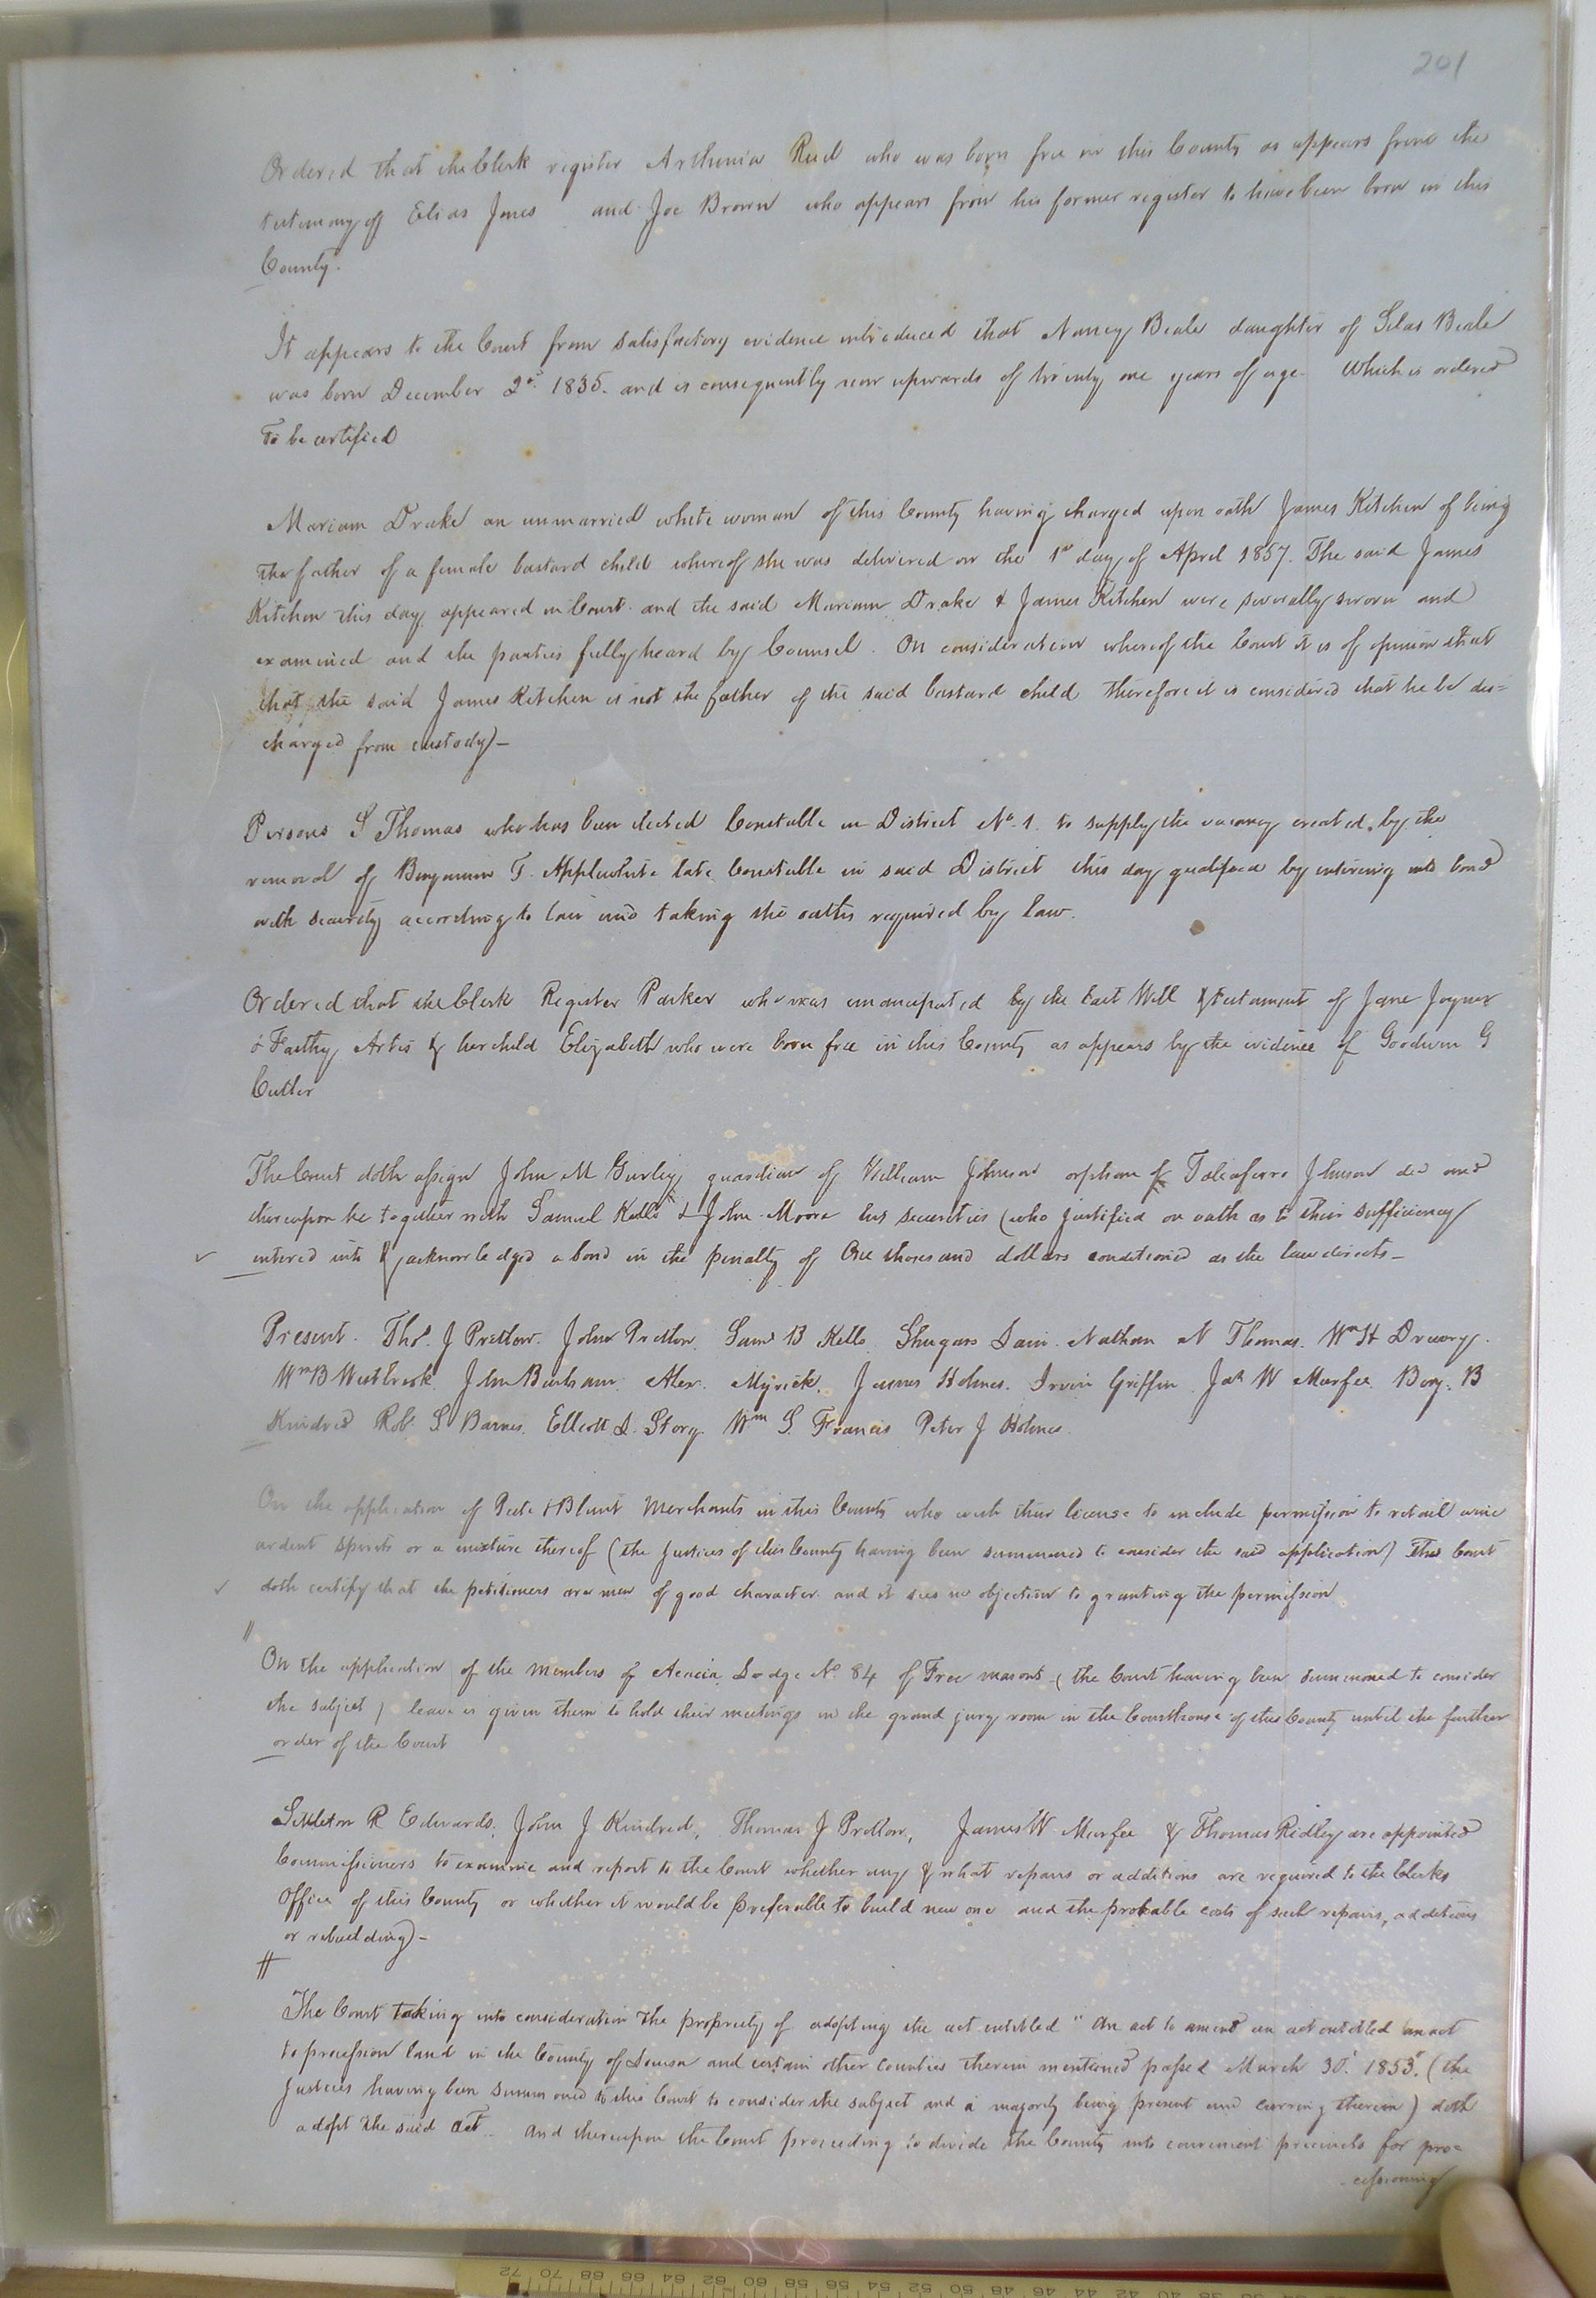 201
Ordered that the Clerk register Arthenia Reed who was born free in this County as appears from the
testimony of Elias Jones and Joe Brown who appears from his former register to have been born in this
County.
It appears to the Court from satisfactory evidence introduced that Nancy Beale daughter of Silas Beale
was born December 2d. 1835. and is consequently now upwards of twenty one years of age Which is ordered
To be certified
Mariam Drake an unmarried white woman of this County having charged upon oath James Kitchen of being
the father of a female bastard child whereof she was delivered on the 1st day of April 1857. The said James
Kitchen this day appeared in Court and the said Mariam Drake & James Kitchen were severally sworn and
examined and the parties fully heard by Counsel. On consideration whereof the Court it is of opinion that
that the said James Kitchen is not the father of the said bastard child therefore it is considered that he be dis=
charged from custody) —
Persons S Thomas who has been elected Constable in District No. 1. to supply the vacancy created by the
removal of Benjamin F. Applewhite late Constable in said District this day qualified by entering into bond
with security according to law and taking the oaths required by law.
Ordered that the Clerk Register Parker who was emancipated by the last Will & testament of Jane Joyner
& Faithy Artis & her child Elizabeth who were born free in this County as appears by the evidence of Goodwin G
Cutler
The Court doth assign John M Gurley guardian of William Johnson orphan of Taliaferro Jhnson decd and
thereupon he together with Samuel Kello & John Moore his securities (who justified on oath as to their sufficiency
entered into & acknowledged a bond in the penalty of One thousand dollars conditioned as the law directs —
Present. Thos. J Pretlow. John Pretlow. Saml B Kello. Shugars Lain. Nathan N Thomas. Wm H Drewry.
Wm B Westbrook. John Barham. Alex. Myrick. James Holmes. Irvin Griffin. Jas W Murfee. Benj. B
Kindred Rob S Barnes. Elliott L. Story. Wm S. Francis Peter J Holmes.
On the application of Pete & Blunt Merchants in this County who wish their license to include permission to retail wine
ardent spirits or a mixture thereof (the Justices of this County having been summoned to consider the said application) The Court
doth certify that the petitioners are men of good character and it sees no objection to granting the permission
On the application of the members of Acacia Lodge No. 84 of Free masons (the Court having been summoned to consider
the subject) leave is given them to hold their meetings in the grand jury room in the Courthouse of this County until the further
order of the Court
Littleton R Edwards, John J Kindred, Thomas J Pretlow, James W Murfee & Thomas Ridley are appointed
Commissioners to examine and report to the Court whether any & what repairs or additions are required to the Clerks
Office of this County or whether it would be preferable to build new one and the probable costs of such repairs, additions
or rebuilding) —
The Court taking into consideration the propriety of adopting the act entitled "An act to amend an act entitled an act
to procession land in the County of Louisa and certain other counties therein mentioned passed March 30. 1853". (the
Justices having been summoned to this Court to consider the subject and a majority being present and curring therein) doth
adopt the said act and thereupon the Court proceeding to divide the County into convenient precincts for pro=
cessioning